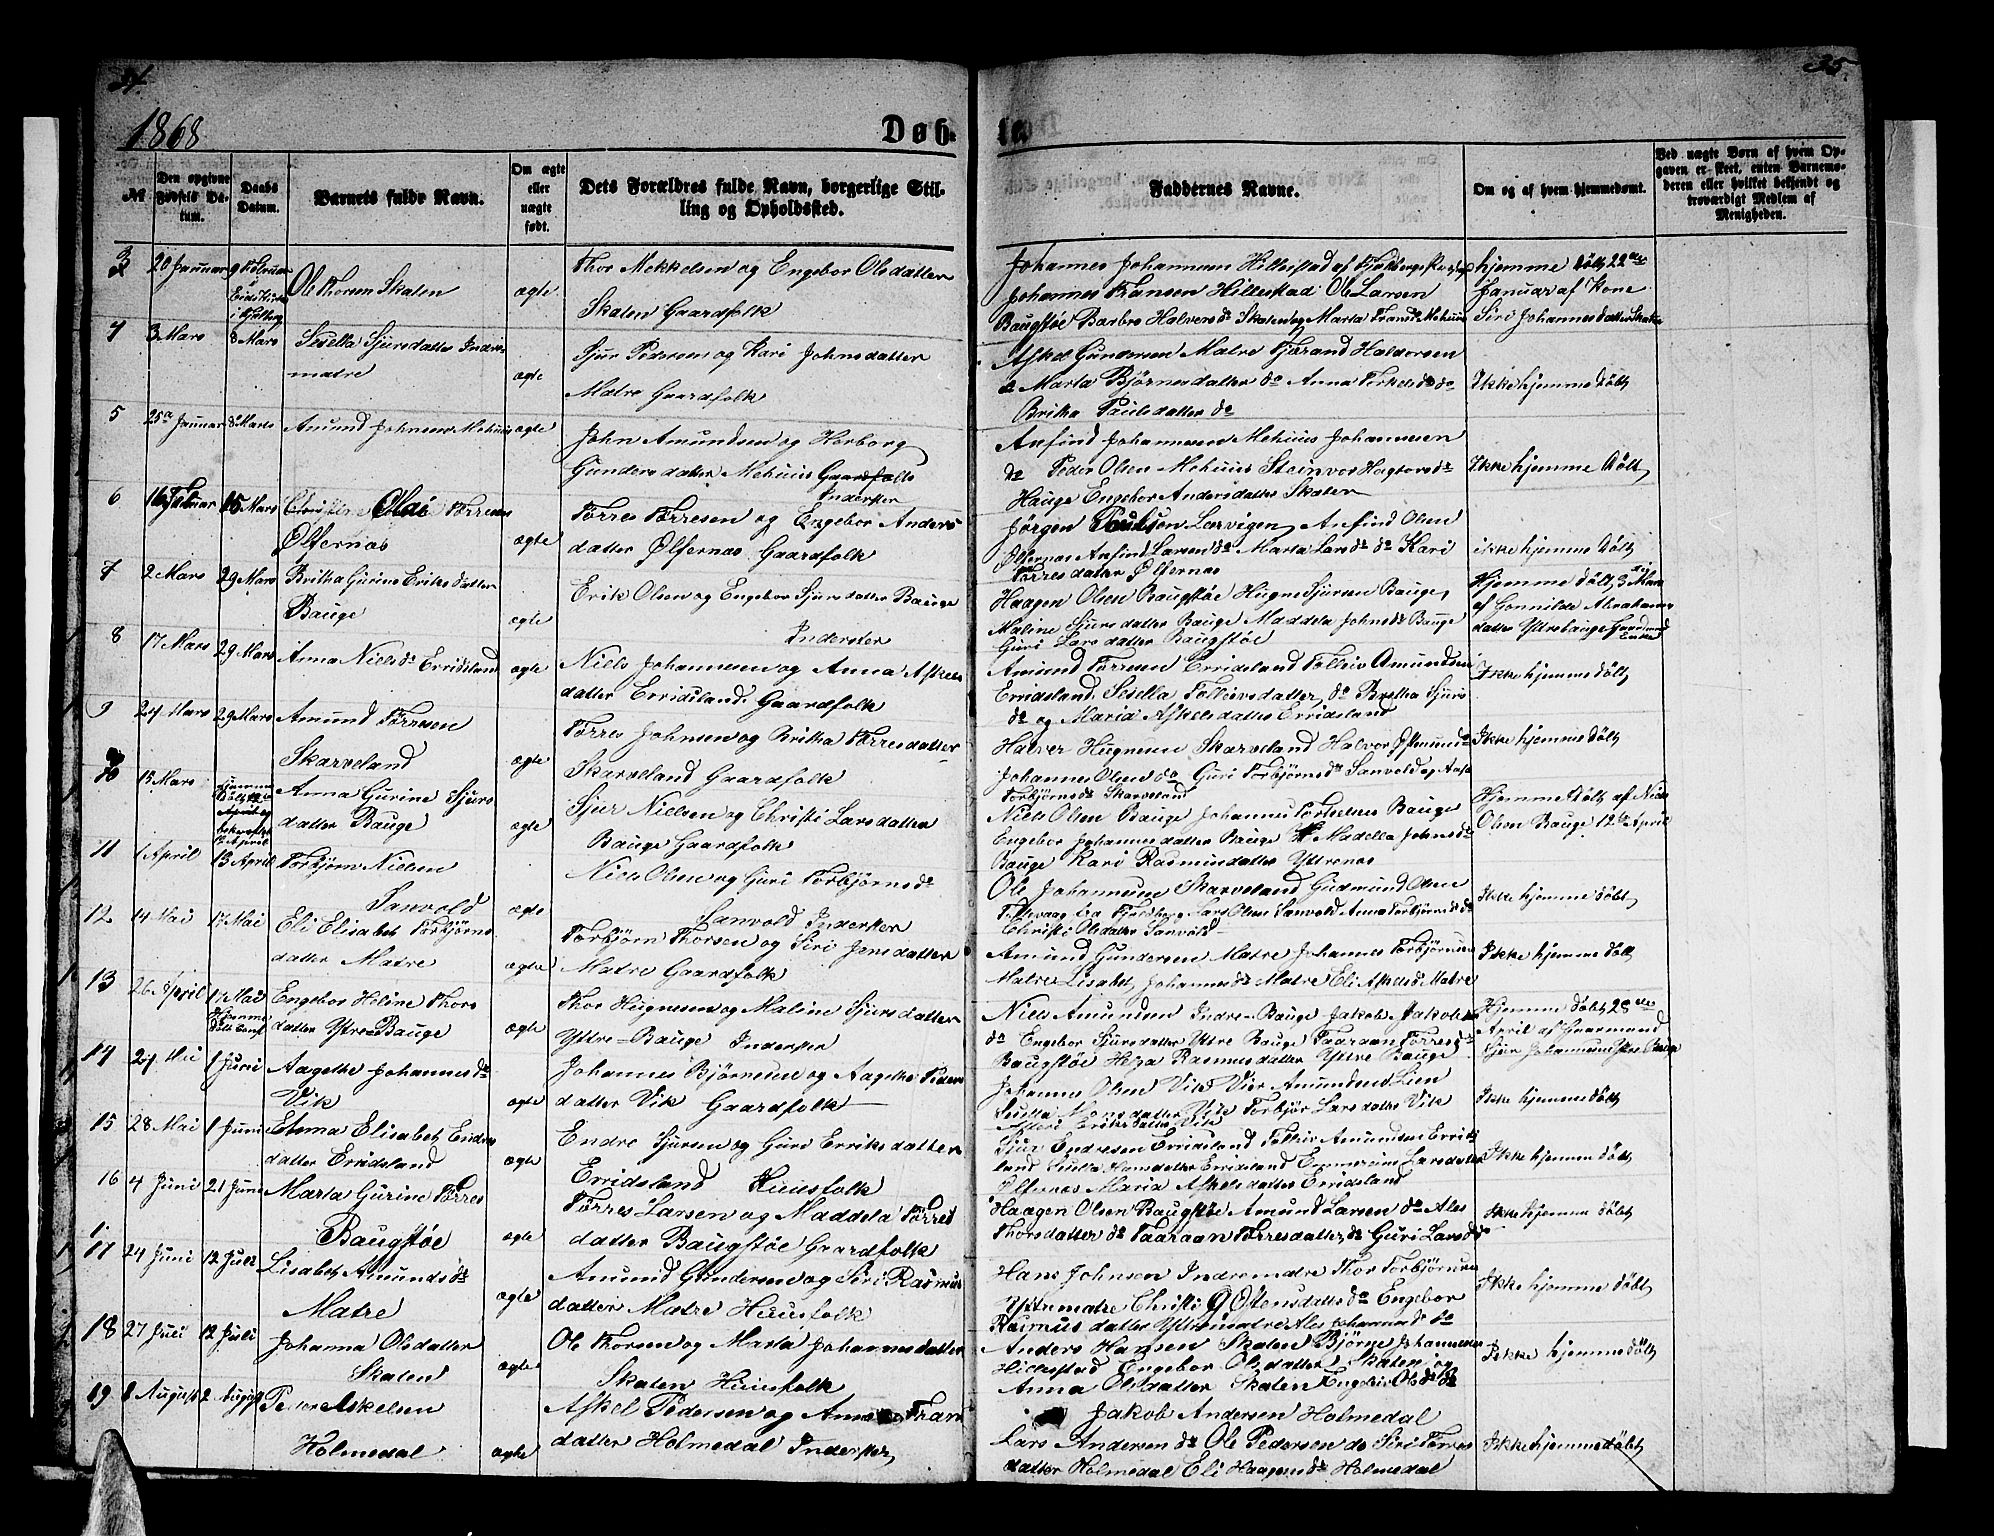 34.
35.
1868
Døb-
te.
№
Den opgivne Fødsels Datum.
Daabs Datum.
Barnets fulde Navn.
Om ægte eller uægte født.
Dets Forældres fulde Navn, borgerlige Stilling og Opholdsted.
Faddernes Navne.
Om og af hvem hjemmedømt.
Ved uægte Børn af hvem Opgaven er skeet, enten Barnemoderen eller hvilket bekjendt og troværdigt Medlem af Menigheden.
3
20 Januar
9 Februar
i Kjølberg
Ole Thorsen Skaten
ægte
Thor Mekkelsen og Engebor Olsdatter
Skaten Gaardfolk
Johannes Johannesen Hillestad af
Johannes Transen Hillestad Ole Larsen
Baugstøe Barbro Halversdr Skaten og Marta
hjemme døbt 22de
Januar af Kone
Siri Johannesdatter Skaten
4
3 Mars
8 Mars
Sesella Sjursdatter Indre
matre
ægte
Sjur Pedersen og Kari Johnsdatter
Matre Gaardfolk
Askel Gundersen Matre Tjærand Haldorsen
Marta Bjørnesdatter do Anna Torkelsdr do
Britha Paulsdatter do
Ikke hjemme døbt
5
25de Januar
8 Mars
Amund Johnsen Mehuus
ægte
John Amundsen og Herborg
Gundersdatter Mehuus Gaardfolk
Inderster
Anfind Johannesen Mehuus Johannesen
do Peder Olsen Mehuus Steinvor Hagtorsdr
Hauge Engebor Andersdatter Skaten
Ikke hjemme døbt
6
16 Februar
15 Mars
Olai Tørresen
Ølfernæs
ægte
Tørres Tørresen og Engebor Anders
datter Ølfernæs Gaardfolk
Jørgen Paulson Larvigen Anfind Olsen
Ølfernæs Anfind Larsen do Marta Larsdr do Kari
Tørresdatter Ølfernæs
ikke hjemme døbt
7
2 Mars
29 Mars
Britha Gurine Eriksdatter
Bauge
ægte
Erik Olsen og Engebor Sjursdatter Bauge
Inderster
Haagen Olsen Baugstøe Hugne Sjursen Bauge
Maline Sjursdatter Bauge Maddela Johnsdr Bauge
Guri Larsdatter Baugstøe
Hjemme døbt 3 Mars
af Gonnilde Abrahams
datter Yttrebauge
8
17 Mars
29 Mars
Anna Nielsdr Erridsland
ægte
Niels Johannesen og Anna Askels
datter Erridsland Gaardfolk
Amund Tørresen Erridsland Tolleiv Amundsen
Erridsland Sesella Tolleivsdatter do Britha Sjurs
dr og Maria Askelsdatter Erridsland
Ikke hjemme døbt
9
24 Mars
29 Mars
Amund Tørresen
Skarveland
ægte
Tørres Johnsen og Britha Tørresdatter
Skarveland Gaardfolk
Halver Hugnesen Skarveland Halvor
Johannes Olsen do Guri Torbjørnsdr Sanvold og
Torbjørnsdr Skarveland
Ikke hjemme døbt
10
15 Mars
Anna Gurine Sjurs
datter Bauge
ægte
Sjur Nielsen og Christi Larsdatter
Bauge Gaardfolk
Niels Olsen Bauge Johannes Torkelsen Bauge
Engebor Johannesdatter Bauge Madella Johnsdr
Bauge Kari Rasmusdatter Yttrenæs
Hjemme døbt af Niels
Olsen Bauge 12te April
11
1 April
13 April
Torbjørn Nielsen
Sanvold
ægte
Niels Olsen og Guri Torbjørnsdr
Sanvold Inderster
Ole Johannesen Skarveland Gudmund Olsen
fra Fjeldberg Lars Olsen Sanvold Anna Torbjørnsdr do
Christi Olsdatter Sanvold
Ikke hjemme døbt
12
14 Mai
17 Mai
Eli Elisabet Torbjørns
datter Matre
ægte
Torbjørn Thorsen og Siri Jensdatter
Matre Gaardfolk
Amund Gundersen Matre Johannes Torbjørnsen
Matre Lisabet Johannesdr Matre Eli Askelsdr Matre
Ikke hjemme døbt
13
26 April
17 Mai
Engebor Heline Thors
datter Ytre-Bauge
ægte
Thor Hugnesen og Maline Sjursdatter
Yttre-Bauge Inderster
Niels Amundsen Indre-Bauge Jakob Jakobsen
do Engebor Sjursdatter Yttre Bauge Taaraan Tørresdr
Baugstøe Helga Rasmusdatter Yttre Bauge
Hjemme døbt 28de
April af Gaarmand
Sjur Johannesen Ytre Bauge
14
24 Mai
1 Juni
Aagethe Johannesdr
Vik
ægte
Johannes Bjørnesen og Aagethe Peders
datter Vik Gaardfolk
Johannes Olsen Vik Vier Amundsen Lien
Sesella Monsdatter Vik Torbjør Larsdatter Vik
Eriksdatter Vik
Ikke hjemme døbt
15
28 Mai
1 Juni
Emma Elisabet Endres
datter Erridsland
ægte
Endre Sjursen og Guri Erriksdatter
Erridsland Huusfolk
Sjur Endresen Erridsland Tolleiv Amundsen Errids
land Sesella Hansdatter Erridsland Emmerense Larsdatter
Ølfernæs Maria Askelsdatter Erridsland
Ikke hjemme døbt
16
4 Juni
21 Juni
Marta Gurine Tørres
Baugstøe
ægte
Tørres Larsen og Maddela Tørres
datter Baugstøe Gaardfolk
Haagen Olsen Baugstøe Amund Larsen do Ales
Thorsdatter do Taaraan Tørresdatter do Guri Larsdr
Ikke hjemme døbt
17
24 Juni
12 Juli
Lisabet Amundsdr
Matre
ægte
Amund Gundersen og Siri Rasmus
datter Matre Huusfolk
Hans Johnsen Indrematre Thor Torbjørnsen
Yttrematre Christi Ostensdatter do Engebor
Rasmusdatter Yttrematre Ales Johannesdr do
Ikke hjemme døbt
18
27 Juli
12 Juli
Johanna Olsdatter
Skaten
ægte
Ole Thorsen og Marta Johannesdatter
Skaten Huusfolk
Anders Hansen Skaten Bjørne Johannessen
Hillestad Engebor Olsdatter Skaten og
Anna Olsdatter Skaten
Ikke hjemme døbt
19
August
2 August
Peder Askelsen
Holmedal
ægte
Askel Pedersen og Anna Trans
datter Holmedal Inderster
Jakob Andersen Holmedal
Lars Andersen do Ole Pedersen do Siri Tørres
datter Holmedal Eli Haagensdr Holmedal
Ikke hjemme døbt